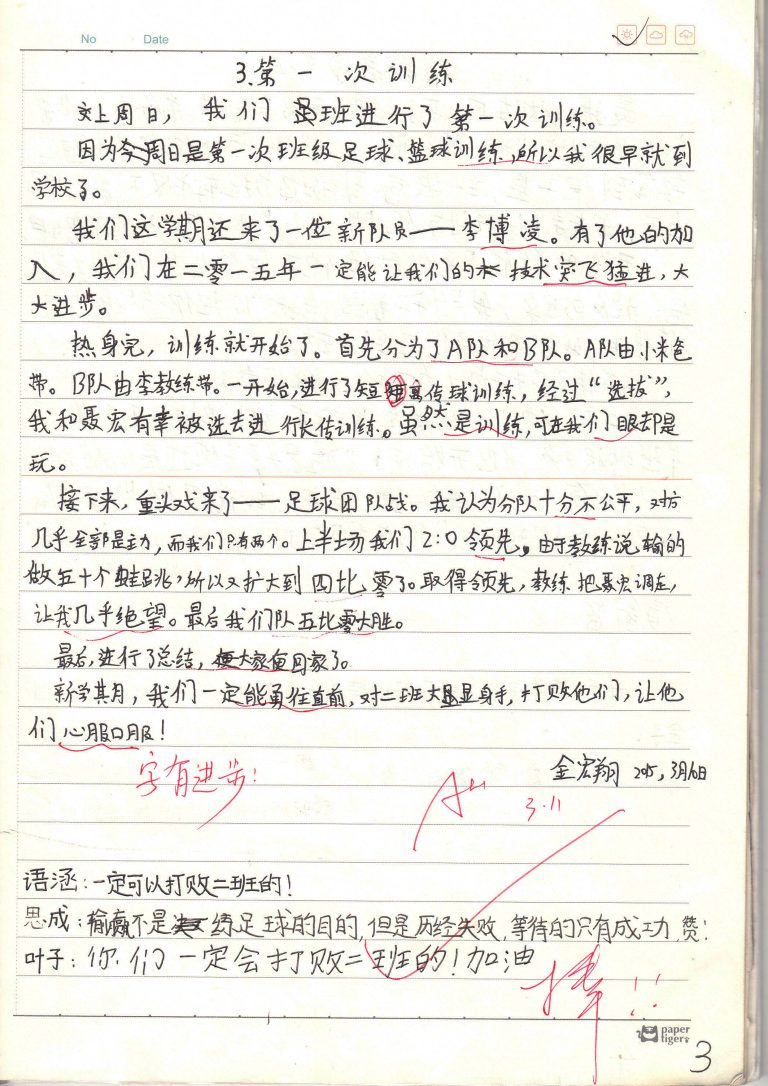 No Date
3.第一次训练
上周日，我们班进行了第一次训练。
因为周日是第一次班级足球、篮球训练，所以我很早就到
学校了。
我们这学期还来了一位新队员——李博凌。有了他的加
入，我们在二零一五年一定能让我们的技术突飞猛进，大
大进步。
热身完，训练就开始了。首先分为了A队和B队。A队由小米爸
带。B队由李教练带。一开始，进行了短传球训练，经过“选拔”，
我和聂宏有幸被选去进行长传训练。虽然是训练，可在我们眼却是
玩。
接下来，重头戏来了——足球团队战。我认为分队十分不公平，对方
几乎全部是主力，而我们只有两个。上半场我们2:0领先。由于教练说输的
做五十个蛙跳，所以又扩大到四比零了。取得领先，教练把聂宏调走，
让我几乎绝望。最后我们队五比零大胜。
最后，进行了总结，大家便回家了。
新学期，我们一定能勇往直前，对二班大显身手，打败他们，让他
们心服口服！
字有进步！
金宏翔 2015，3月6日
A+
3.11
语涵：一定可以打败二班的！
思成：输赢不是练足球的目的，但是历经失败，等待的只有成功，赞！
叶子：你们一定会打败二班的！加油
棒!!
paper
tiger
3